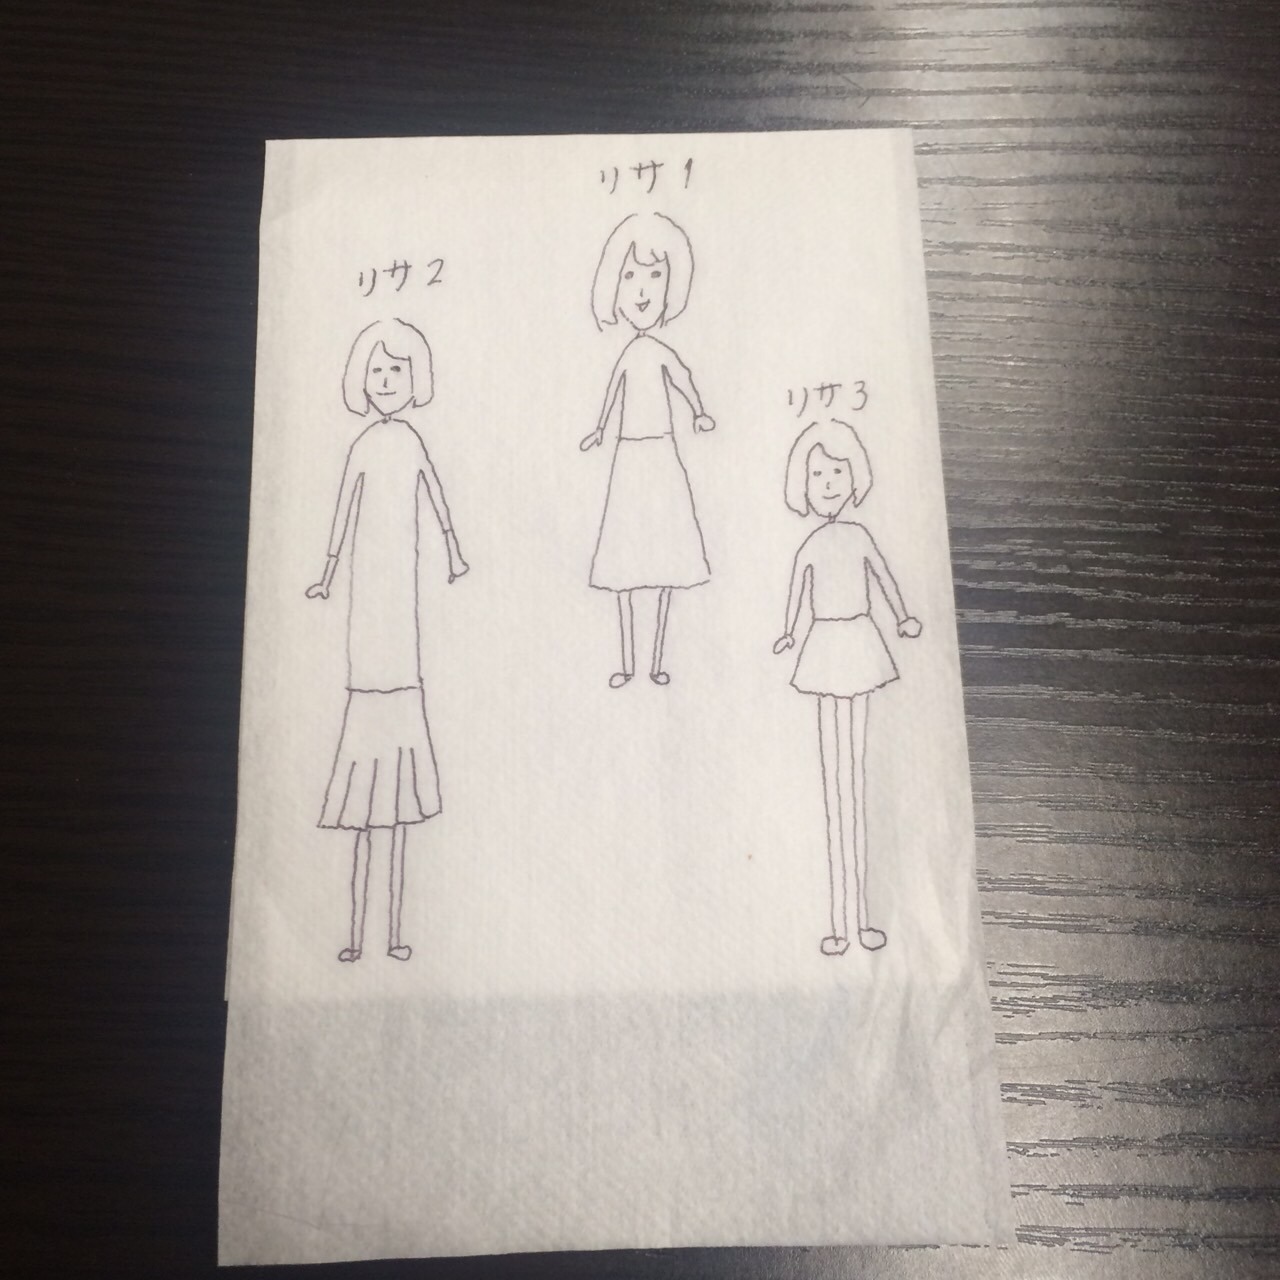 リサ1
リサ2
リサ3